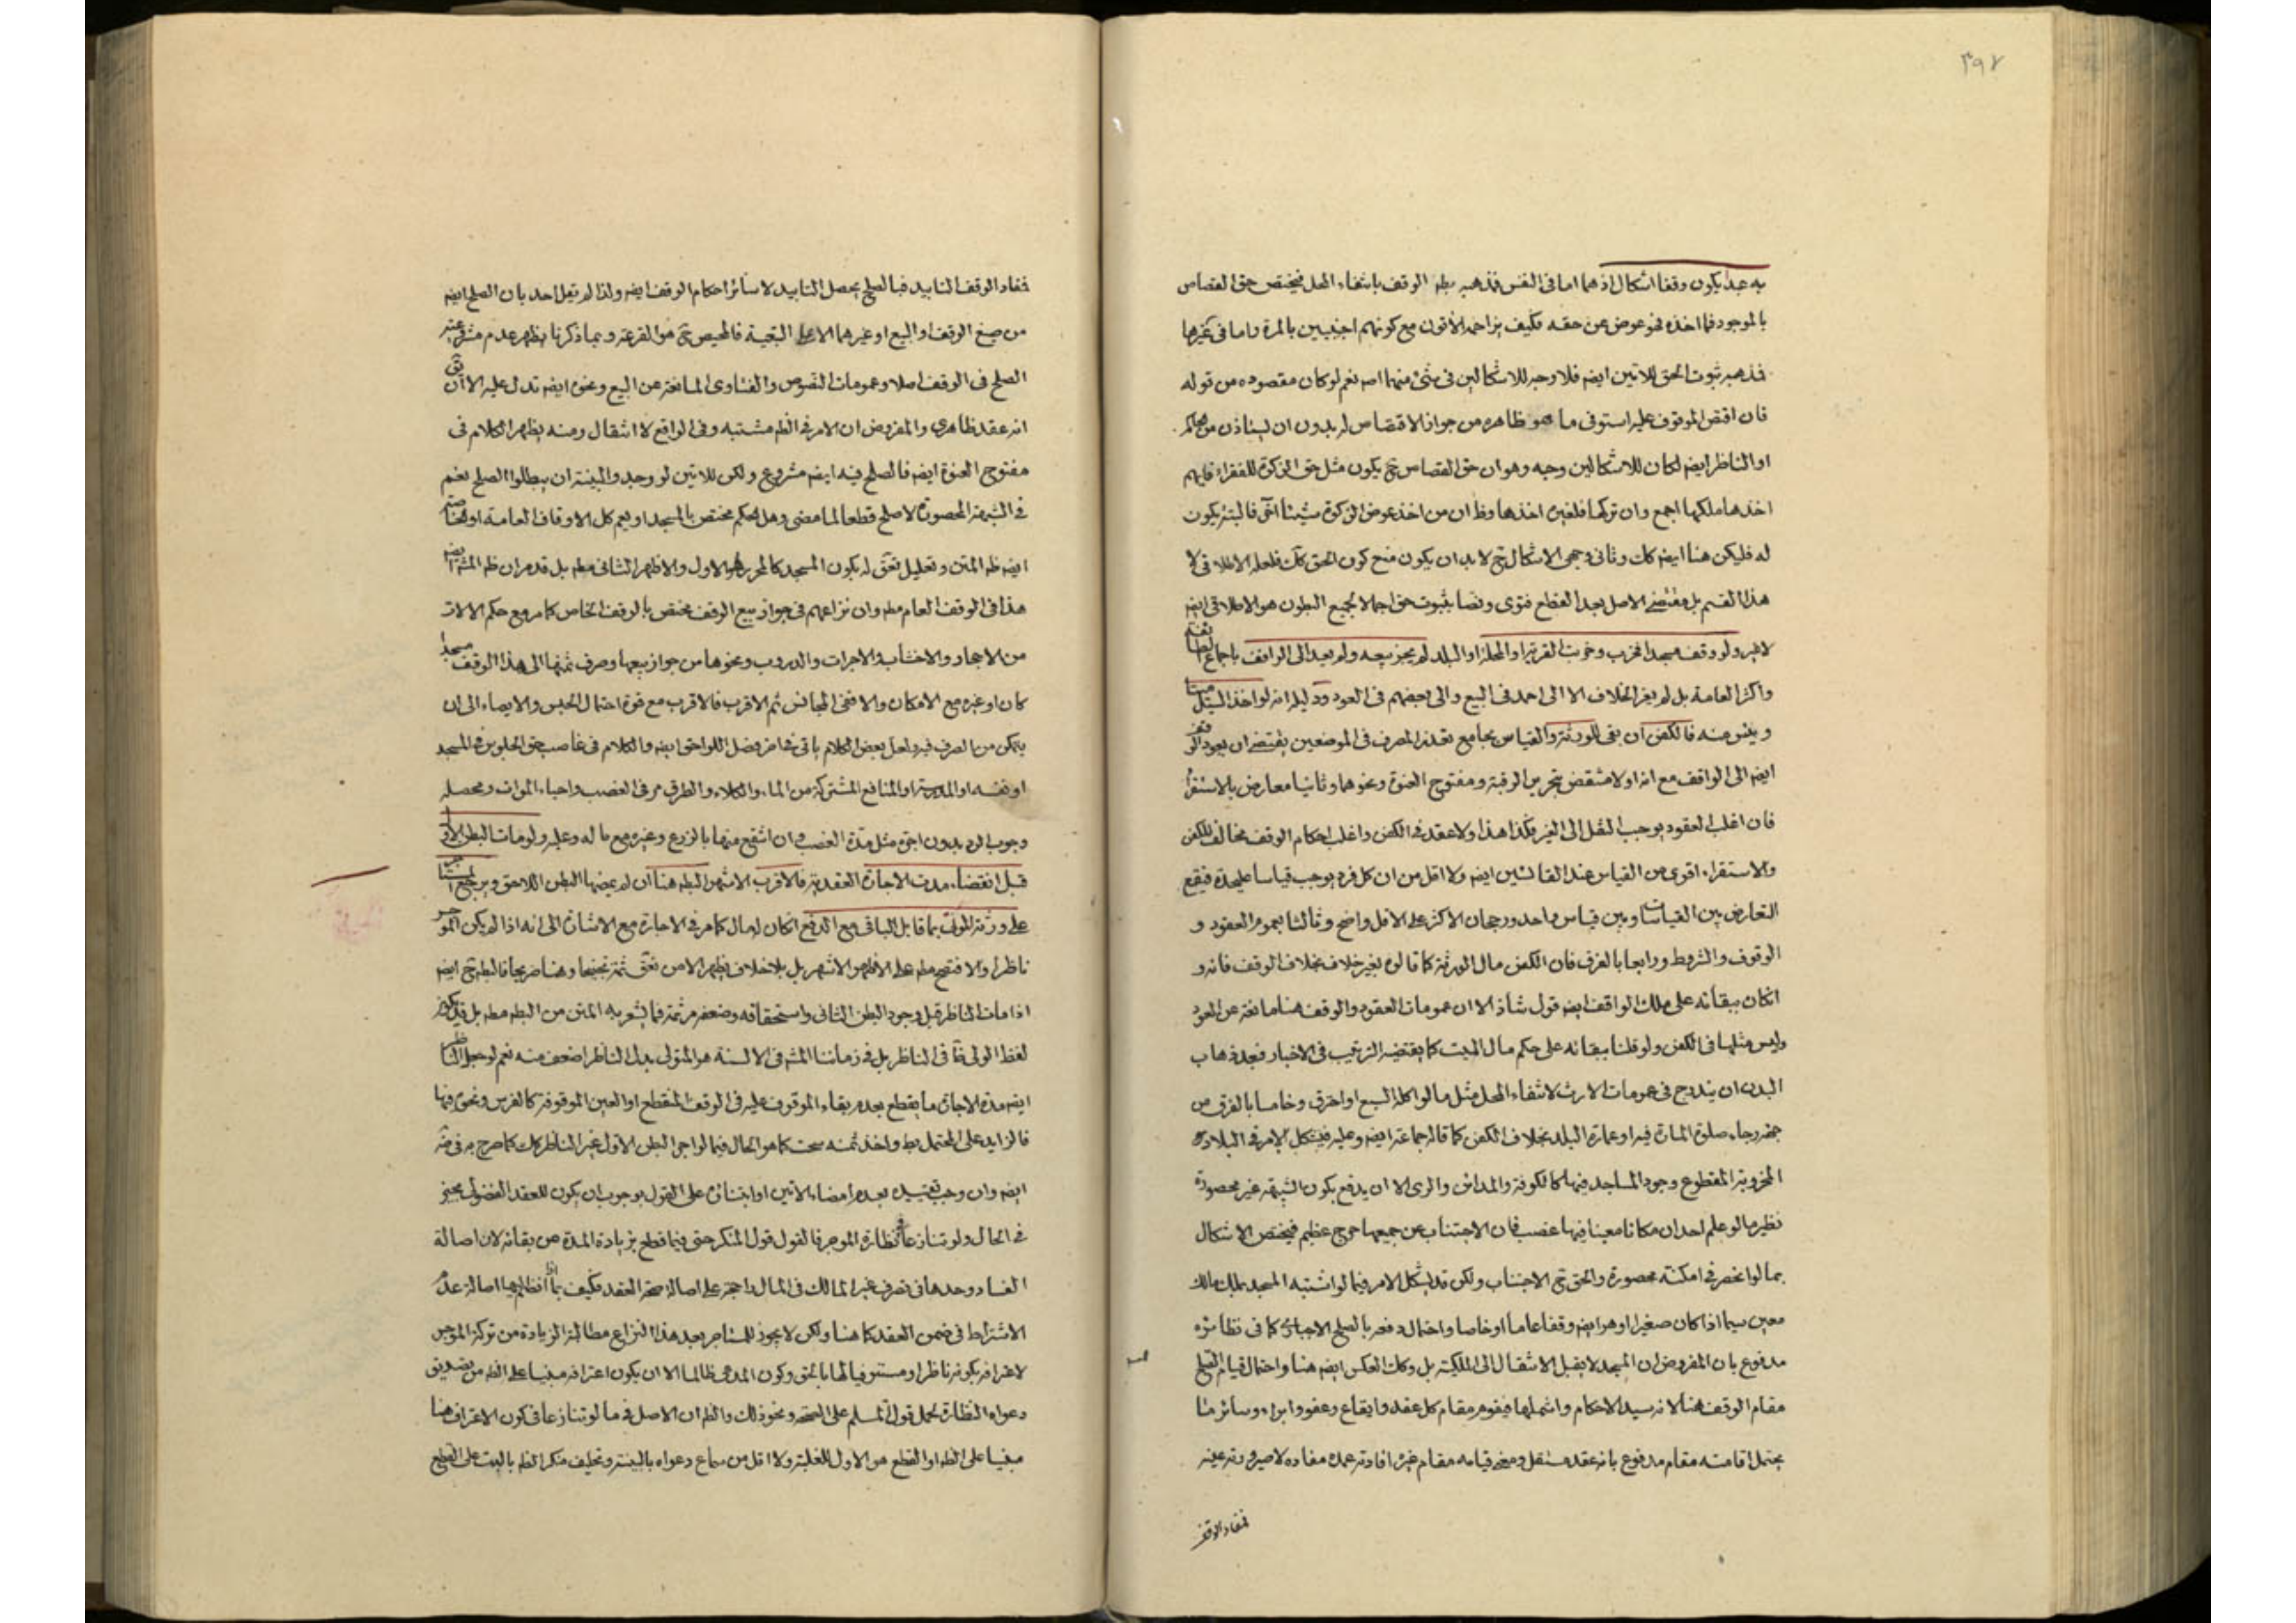 ٣٩٧
به عبدا يكون وقفا اشكال اذ هما اما في النفس فمذهبه بطه الوقف بانتفاء المحل فيختص حق القصاص
بالموجود فما اخذه نحو عوض عن حقه فكيف يزاحمه الآتون مع كونهم اجنبيين بالمرة واما في غيرها
فمذهبه ثبوت الحق للاتين ايضه فلا وجه للاشكالين في شئ منهما اصه نعم لو كان مقصوده من قوله
فان اقتص الموقوف عليه استوفى ما هو ظاهره من جواز الاقتصاص له بدون ان يستاذن من الحاكم
او الناظر ايضه لكان للاشكالين وجه وهو ان حق القصاص ح يكون مثل حق الزكوة للفقراء فايهم
اخذها ملكها اجمع وان تركها فلغيره اخذها وظ ان من اخذ عوض الزكوة شيئا آخر فالبتة يكون
له فليكن هنا ايضه كك وثاني وجهى الاشكال ح لا بد ان يكون منع كون الحق كك فلعله الاطلاقى لا
هذا القسم بل مقتضى الاصل بعد القطع فتوى ونصا بثبوت حق اجمالا لجميع البطون هو الاطلاقى ايضه
لاغير ولو وقف مسجدا فخرب وخربت القرية او المحلة او البلد لم يجز بيعه ولم يعد الى الواقف باجماع الطائفة
واكثر العامة بل لم يعز الخلاف الا الى احمد في البيع والى بعضهم في العود ودليله انه لو اخذ السيل ميتا
ويئس منه فالكفن ان بقى للورثة والقياس بجامع تعذر المصرف في الموضعين يقتضى ان يعود الوقف
ايضه الى الواقف مع انه اولا منتقض بتحرير الرقبة ومفتوح العنوة ونحوهما وثانيا معارض بالاستقراء
فان اغلب العقود يوجب النقل الى الغير فكذا هذا ولا عقد في الكفن واغلب احكام الوقف مخالف للكفن
والاستقراء اقوى من القياس عند القائسين ايضه ولا اقل من ان كل فرد يوجب قياسا عليحدة فيقع
التعارض بين القياسات وبين قياس واحد ورجحان الاكثر على الاقل واضح وثالثا بعموم العقود و
الوقوف والشروط ورابعا بالفرق فان الكفن مال الورثة كما قالوه بغير خلاف بخلاف الوقف فانه و
انكان ببقائه على ملك الواقف ايضه قول شاذ الا ان عمومات العقود والوقف هنا مانعة عن العود
وليس مثلها في الكفن ولو قلنا ببقائه على حكم مال الميت كما يقتضيه الترتيب في الاخبار فبعد ذهاب
البدن ان يندرج في عمومات الارث لانتفاء المحل مثل ما لو اكله السبع او احترق وخامسا بالفرق من
جهة رجاء صلوة المارة فيه او عمارة البلد بخلاف الكفن كما قاله جماعة ايضه وعليه فيشكل الامر في البلاد
المخروبة المقطوع وجود المساجد فيها كالكوفة والمدائن والرى الا ان يدفع بكون الشبهة غير محصورة
نظير ما لو علم احد ان مكانا معينا فيها غصب فان الاجتناب عن جميعها حرج عظيم فيختص الاشكال
بما لو انحصر في امكنة محصورة والحق ح الاجتناب ولكن قد يشكل الامر فيما لو اشتبه المسجد بملك مالك
معين سيما اذا كان صغيرا وهو ايضه وقفا عاما او خاصا واحتمال دفعه بالصلح الاجباري كما في نظائره
مدفوع بان المفروض ان المسجد لا يقبل الانتقال الى الملكية بل وكك العكس ايضه هنا واحتمال قيام الصلح
مقام الوقف هنا لانه سيد الاحكام واشملها فيقوم مقام كل عقد وايقاع وعفو وابراء وسائر ما
يحتمل اقامته مقام مدفوع بانه عقد مستقل ومعنى قيامه مقام غيره افادته عمدة مفاده لا صيرورته عينه
فمفاد الوقف
فمفاد الوقف التابيد فبالصلح يحصل التابيد لا سائر احكام الوقف ايضه ولذا لم يقل احد بان الصلح ايضه
من صيغ الوقف او البيع او غيرهما الا على التبعية فالمحيص ح هو القرعة وبما ذكرنا يظهر عدم مشروعية
الصلح في الوقف اصلا وعمومات النصوص والفتاوى المانعة عن البيع ونحوه ايضه تدل عليه الا ان يق
انه عقد ظاهرى والمفروض ان الامر في الظه مشتبه وفى الواقع لا انتقال ومنه يظهر الكلام في
مفتوح العنوة ايضه فالصلح فيه ايضه مشروع ولكن للاتين لو وجدوا البينة ان يبطلوا الصلح نعم
في الشبهة المحصورة لا صلح قطعا لما مضى وهل الحكم مختص بالمسجد او يعم كل الاوقاف العامة او الخاصة
ايضه ظه المتن وتعليل تعق له بكون المسجد كالمحرر هو الاول والاظهر الثانى مطه بل قد مر ان ظه المشه ايضه
هذا في الوقف العام مطه وان نزاعهم في جواز بيع الوقف مختص بالوقف الخاص كما مر مع حكم الالات
من الاحجار والاخشاب والاجرات والدروب ونحوها من جواز بيعها وصرف ثمنها الى هذا الوقف مسجدا
كان او غيره مع الامكان والا ففى المجانس ثم الاقرب فالاقرب مع قوة احتمال الحبس والايصاء الى ان
يتمكن من الصرف فيه ولعل بعض الكلام ياتى في فضل اللواحق ايضه والكلام في غاصب حق الجلوس في المسجد
او نفسه او المدرسة او المنافع المشتركة من الماء والكلاء والطرق مر في الغصب واحياء الموات ومحصله
وجوب الرد بدون اجرة مثل مدة الغصب وان انتفع منها بالزرع وغيره مع ما له وعليه ولو مات البطن الاول
قبل انقضاء مدت الاجارة العقدية فالاقرب الاشهر البطه هنا ان لم يمضها البطن اللاحق ويرجع المستاجر
على ورثة الموتى بما قابل الباقى مع الدفع انكان له مال كما مر في الاجارة مع الاشارة الى انه اذا لم يكن الموجر
ناظرا والا فتصح مطه على الاظهر الاشهر بل بلا خلاف يظهر الا من تعق ثمة تجنحا وهنا صريحا فالبطه ح ايضه
اذا مات الناظر قبل وجود البطن الثانى واستحقاقه وضعفه مر ثمة فما يشعر به المتن من البطه مطه بل قيل بكون
لفظ الولى فا في الناظر بل في زماننا المشه في الالسنة هو المتولى بدل الناظر اضعف منه نعم لو جعل الناظر
ايضه مدة الاجارة ما يقطع بعدم بقاء الموقوف عليه في الوقف المنقطع او العين الموقوفة كالفرس ونحوه فيها
فالزايد على المحتمل بط واخذ ثمنه سحت كما هو الحال فيما لو اجر البطن الاول غير الناظر كك كما صرح به في ضه
ايضه وان وجب تقييده بعدم امضاء الاتين او ابتنائه على القول بوجوب ان يكون للعقد الفضولى مجيز
في الحال ولو تنازعا في نظارة الموجر فالقول قول المنكر حتى فيما قطع بزيادة المدة من بقائه لان اصالة
الفساد وحدها في تصرف غير المالك في المال راجحة على اصالة صحة العقد فكيف بما اذا انظم اليها اصالة عدم
الاشتراط في ضمن العقد كما هنا ولكن لا يجوز للمستاجر بعد هذا النزاع مطالبة الزيادة من تركة الموجر
لاعترافه بكونه ناظرا ومستوفيا لها بالحق وكون المدعى ظالما الا ان يكون اعترافه مبنيا على الظه من تصديق
دعواه النظارة لحمل قول المسلم على الصحة ونحو ذلك والظه ان الاصل في ما لو تنازعا في كون الاعتراف هنا
مبنيا على الظه او القطع هو الاول للغلبة ولا اقل من سماع دعواه بالبينة وتحليف منكر الظه بالبت على القطع